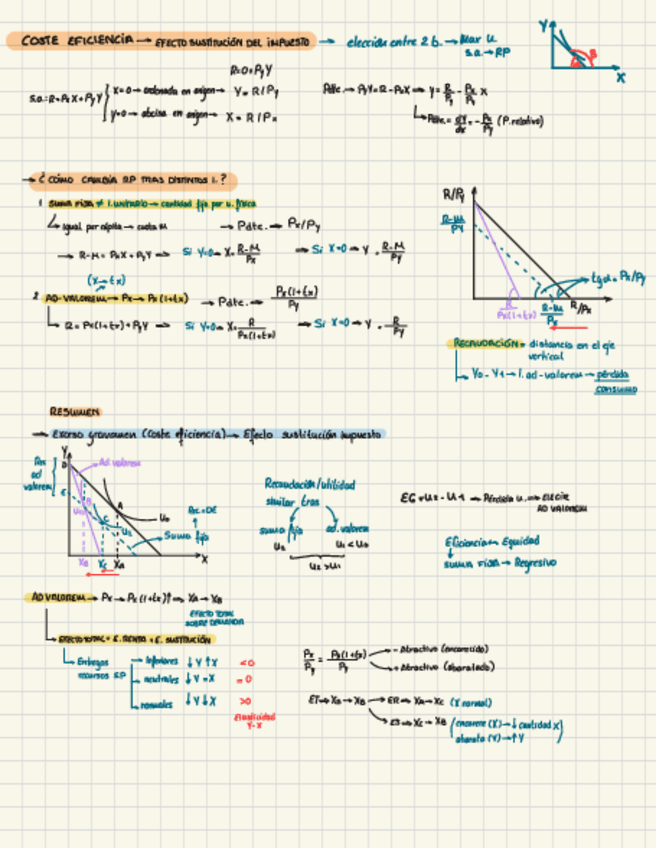 COSTE EFICIENCIA → EFECTO SUSTITUCIÓN DEL IMPUESTO → elección entre 2 b. → Max U
s.a. → RP
Y
X
R=0+PyY
s.a.: R=PxX+PyY
X=0 → ordenada en origen → Y = R/Py
y=0 → abcisa en origen → X = R/Px
Pdte. → PyY=R-PxX → y = R/Py - Px/Py X
Pdte. = dY/dX = - Px/Py (P. relativo)
→ ¿CÓMO CAMBIA RP TRAS DISTINTOS I.?
1 SUMA FIJA ≠ I. unitario → cantidad fija por u. física
Igual per cápita → cuota M → Pdte. → Px/Py
→ R-M = PxX + PyY → Si Y=0 → X = R-M/Px → Si X=0 → Y = R-M/Py
(x → tx)
2 AD-VALOREM → Px → Px(1+tx) → Pdte. → Px(1+tx)/Py
R = Px(1+tx)+PyY → Si Y=0 → X = R/Px(1+tx) → Si X=0 → Y = R/Py
R/Py
R-M/Py
tgα = Px/Py
R/Px(1+tx)
R-M/Px
R/Px
RECAUDACIÓN = distancia en el eje
vertical
Y0 - Y1 → I. ad-valorem → pérdida
consumo
RESUMEN
→ Exceso gravamen (Coste eficiencia) → Efecto sustitución impuesto
Y
D
Rec
ad
valorem
E
Ad valorem
A
B
C
U0
U1
U2
Rec = DE
Suma fija
XB XC XA
X
Recaudación/utilidad
similar tras
suma fija
ad. valorem
U2
U1 < U0
U2 > U1
EG = U2 - U1 → Pérdida u. → elegir
AD VALOREM
Eficiencia → Equidad
suma fija → Regresivo
AD VALOREM → Px → Px(1+tx)↑ → XA → XB
EFECTO TOTAL
SOBRE DEMANDA
EFECTO TOTAL = E. RENTA + E. SUSTITUCIÓN
Entregas
recursos S.P
Inferiores ↓Y ↑X <0
neutrales ↓Y =X =0
normales ↓Y ↓X >0
Elasticidad
Y-X
Px/Py = Px(1+tx)/Py
- Atractivo (encarecido)
+ Atractivo (abaratado)
ET → XA → XB
ER → XA → XC (X normal)
ES → XC → XB (encarece (X) → ↓ cantidad X)
abarata (Y) → ↑Y